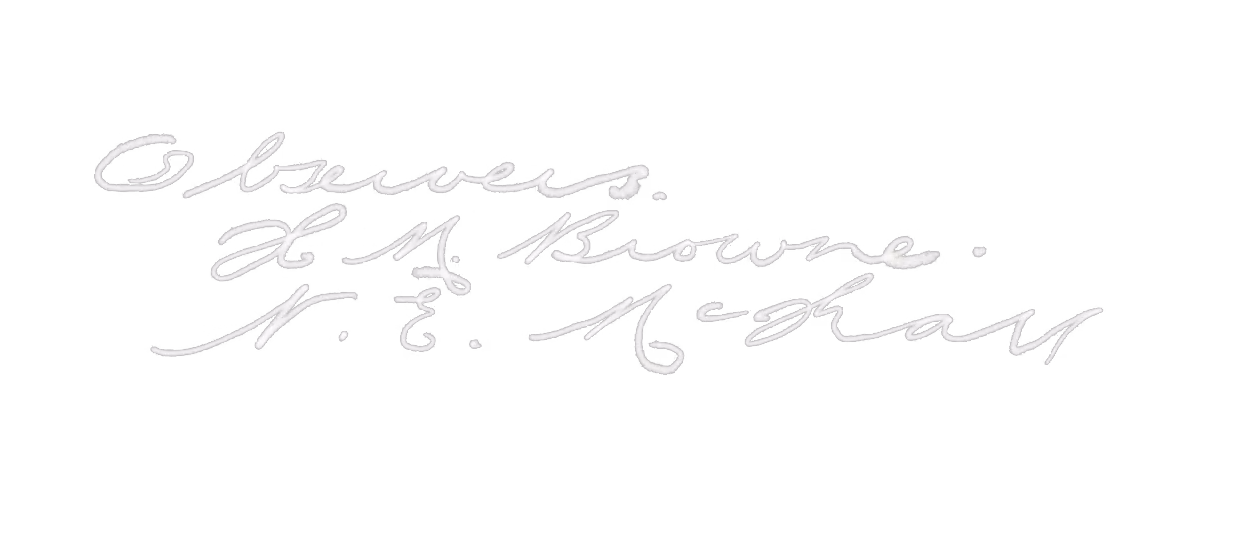 Observers.
H. M. Browne.
N. E. McGraw